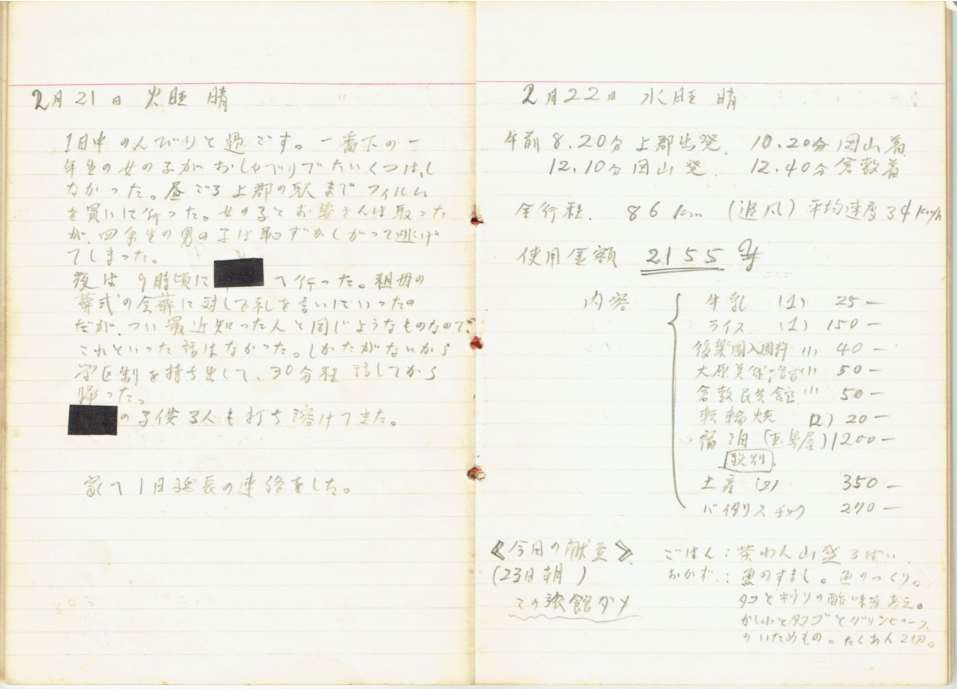 2月21日 火旺 晴
1日中のんびりと過です。一番下の一
年生の女の子がおしゃべりでたいくつはし
なかった。昼ごろ上郡の駅までフィルム
を買いに行った。女の子とお婆さんは取った
が、四年生の男の子は恥ずかしがって逃げ
てしまった。
夜は9時頃に へ行った。祖母の
葬式の会葬に対して礼を言いにいったの
だが、つい最近知った人と同じようなものなので、
これといった話はなかった。しかたがないから
学区制を持ち出して、30分程 話してから
帰った。
の子供3人も打ち溶けてきた。
家へ1日延長の連絡をした。
2月22日 水旺 晴
午前 8.20分 上郡出発. 10.20分 岡山着
12.10分 岡山発. 12.40分 倉敷着
全行程. 86 km (追風) 平均速度 34 km/h
使用金額 2155 円
内容
牛乳 (1) 25ー
ライス (1) 150ー
後楽園入園料 (1) 40ー
大原美 (1) 50ー
倉敷民芸館 (1) 50ー
(2) 20ー
宿泊 ( 屋) 1200ー
税別
土産 (2) 350ー
バイタリス チック 270ー
《今日の献立》
(23日朝)
この旅館ダメ
ごはん:茶わん山盛3ばい
おかず:魚のすまし。魚のつくり。
タコとキウリの酢味噌
かしわとタマゴとグリンピース
のいためもの。たくあん2切。